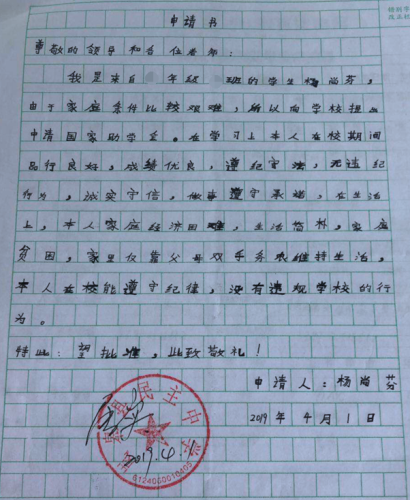 申请书
尊敬的领导和各位老师：
我是来自 年级 班的学生杨尚芬，
由于家庭条件比较艰难，所以向学校提出
申请国家助学金。在学习上本人在校期间
品行良好，成绩优良，遵纪守法，无违纪
行为，诚实守信，做事遵守承诺，在生活
上，本人家庭经济困难，生活简朴，家庭
贫困，家里仅靠父母双手务农维持生活，
本人在校能遵守纪律，没有违规学校的行
为。
特此：望批准，此致敬礼！
申请人：杨尚芬
2019年4月1日
民主中学
2019.4.
6124050010405